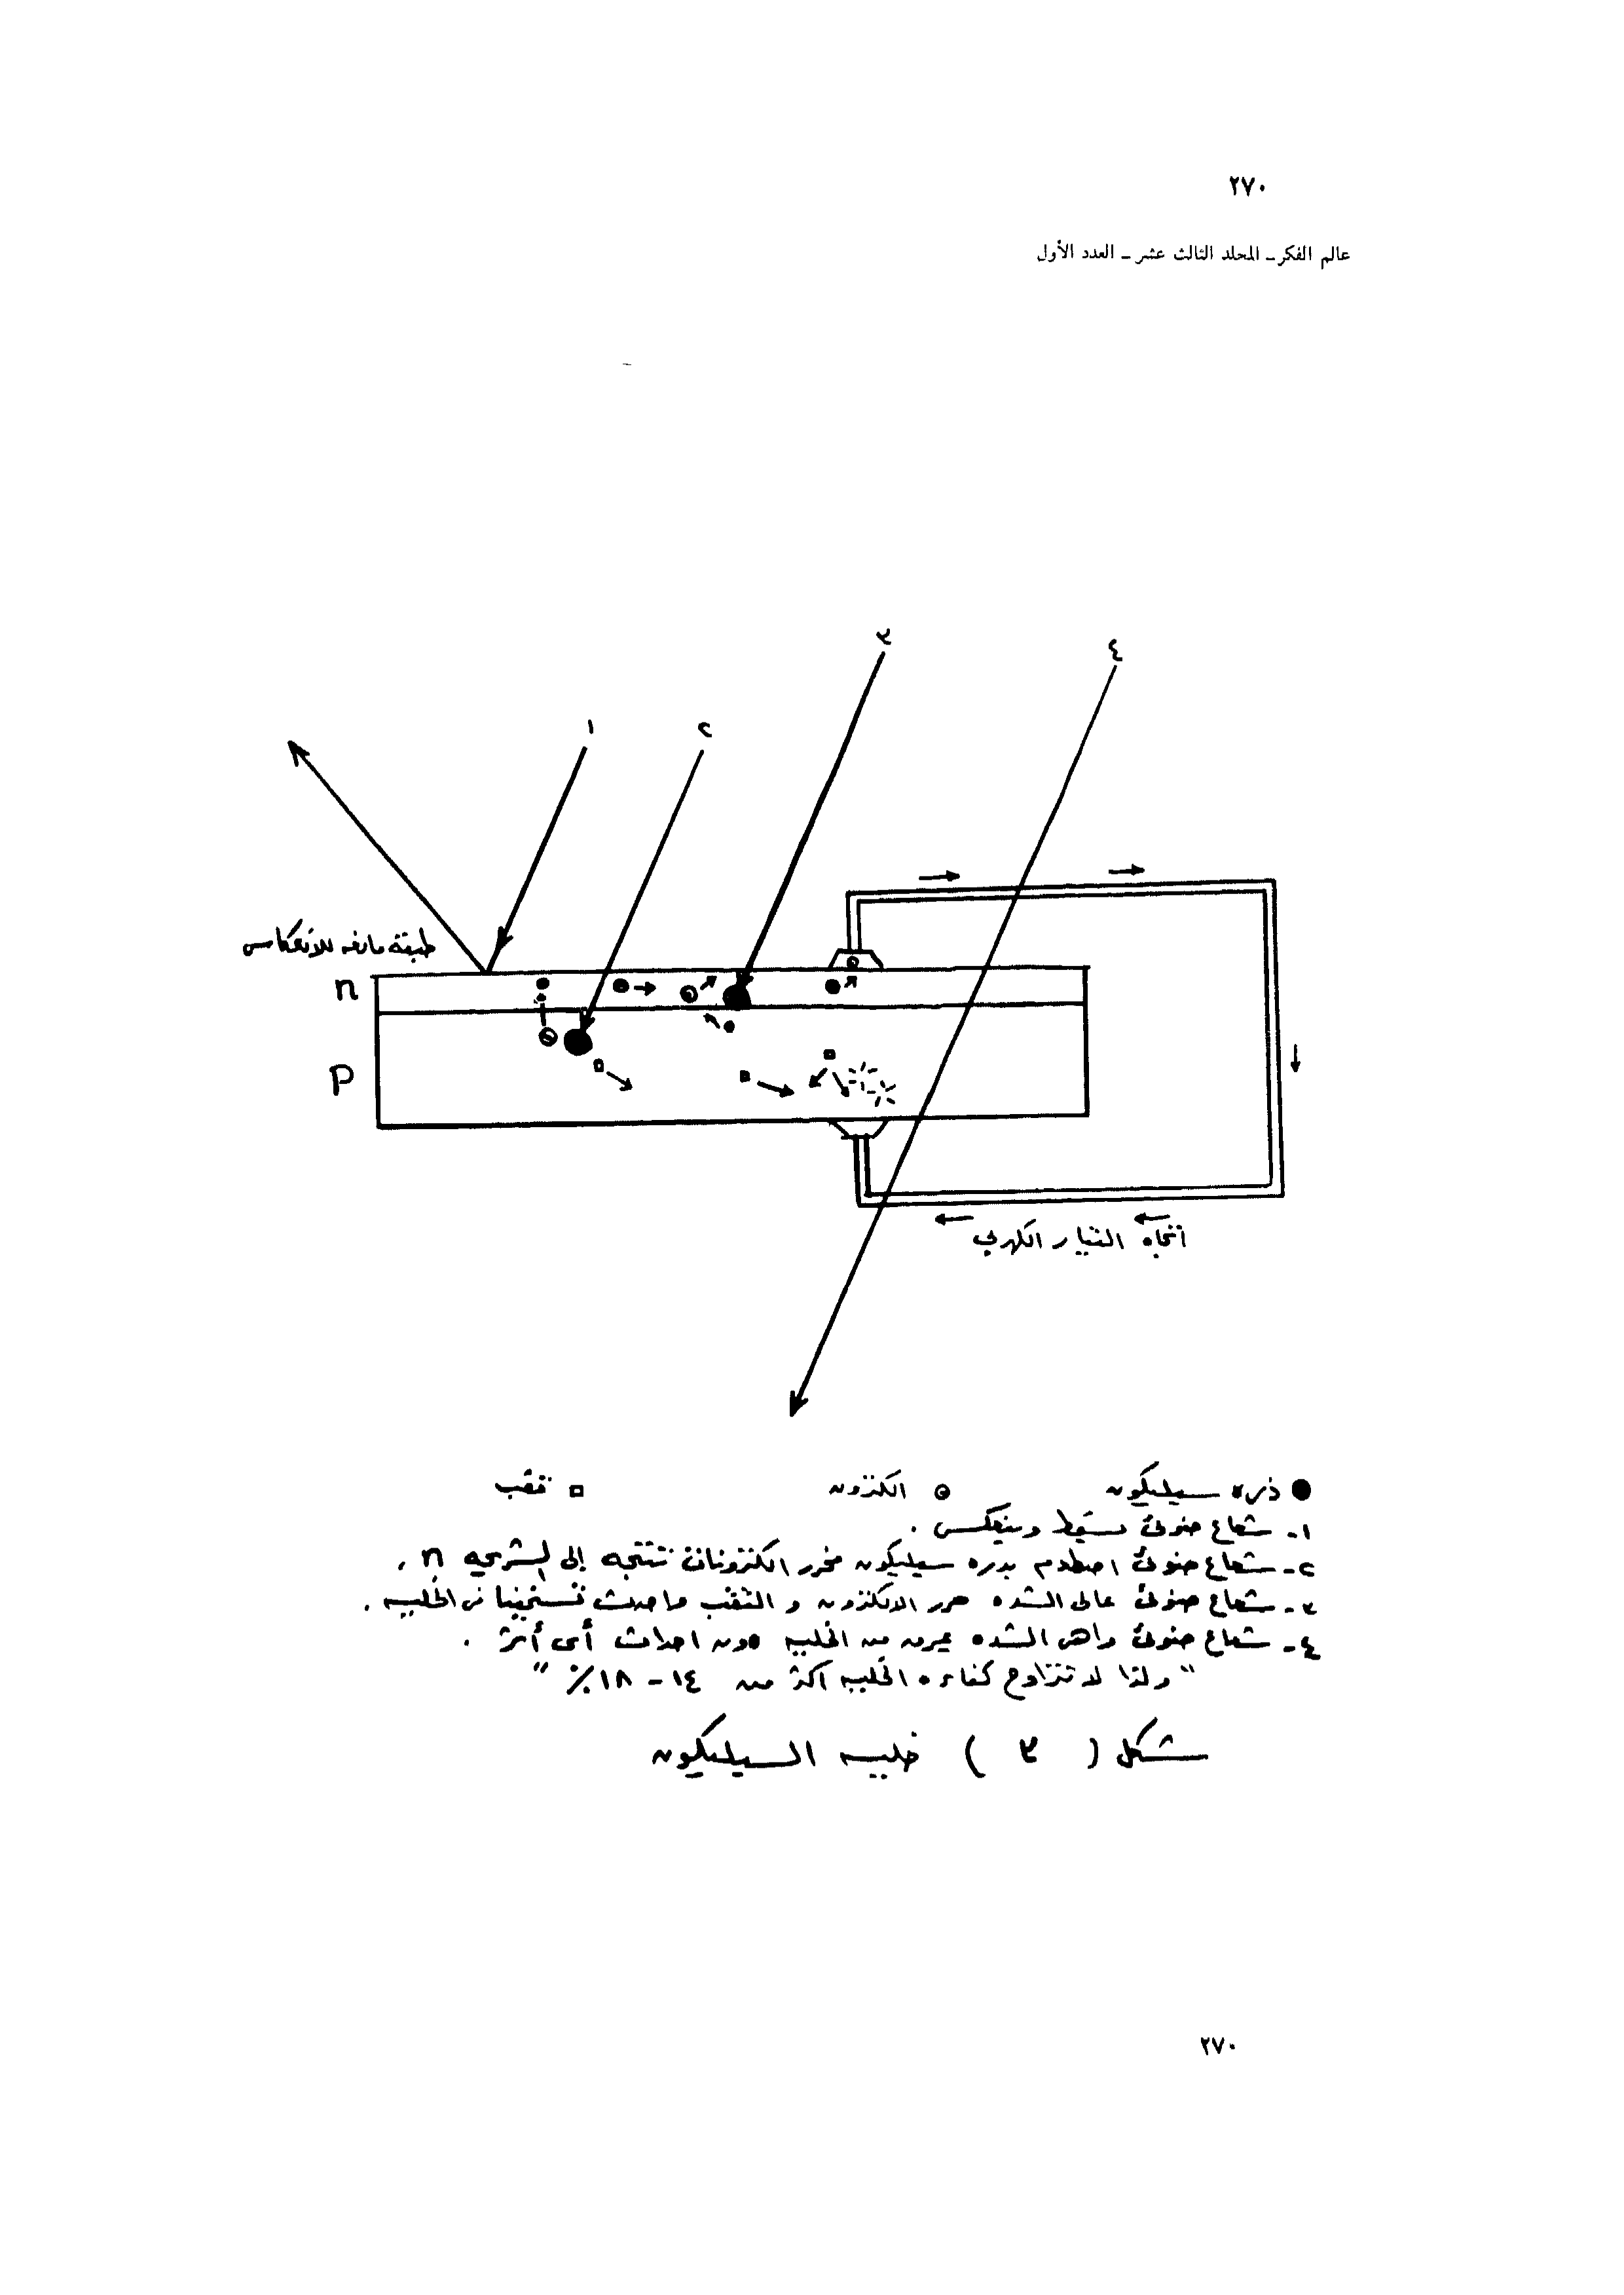 ٢٧٠
عالم الفكر ـ المجلد الثالث عشر ـ العدد الأول
٣
٤
١
٢
طبقة مانعه للانعكاس
n
P
اتجاه التيار الكهربي
ذره سيليكون
الكترون
ثقب
١- شعاع ضوئى يسقط وينعكس .
٢- شعاع ضوئى اصطدم بذره سيليكون فحرر الكترونات تتجه إلى الشريحه n .
٣- شعاع ضوئى عالى الشده حرر الالكترون و الثقب واحدث تسخينا فى الخليه .
٤- شعاع ضوئى واهى الشده يمر من الخليه دون احداث أى أثر .
" ولذا لا تتراوح كفاءه الخليه اكثر من ١٤ - ١٨ ٪ "
شكل ( ٣ ) خليه السيليكون
٢٧٠